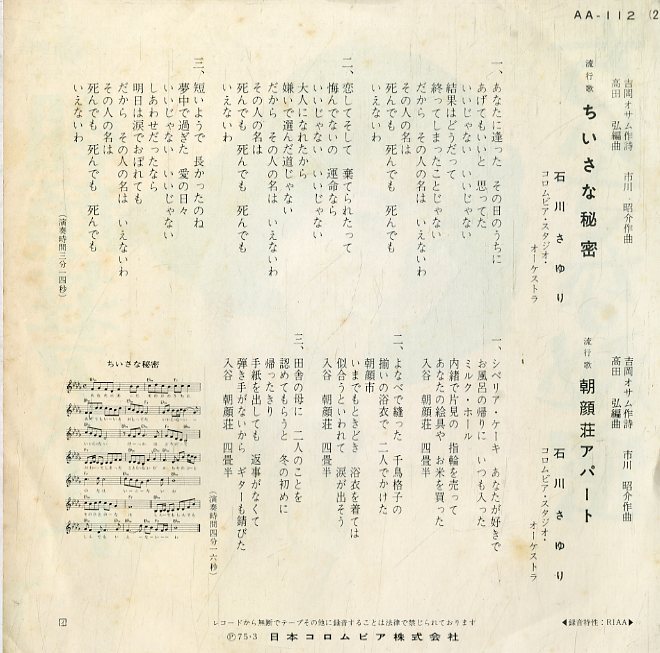 AA-112 (2)
吉岡オサム作詩 市川 昭介作曲
高田 弘編曲
流行歌 ちいさな秘密
石川さゆり
コロムビア・スタジオ・
オーケストラ
一、あなたに逢った その日のうちに
あげてもいいと 思ってた
いいじゃない いいじゃない
結果はどうだって
終ってしまったことじゃない
だから その人の名は いえないわ
その人の名は
死んでも 死んでも 死んでも
いえないわ
二、恋してそして 棄てられたって
悔んでないの 運命なら
いいじゃない いいじゃない
大人になれたから
嫌いで選んだ道じゃない
だから その人の名は いえないわ
その人の名は
死んでも 死んでも 死んでも
いえないわ
三、短いようで 長かったのね
夢中で過ぎた 愛の日々
いいじゃない いいじゃない
しあわせだったなら
明日は涙でおぼれても
だから その人の名は いえないわ
その人の名は
死んでも 死んでも 死んでも
いえないわ
(演奏時間三分一四秒)
吉岡オサム作詩 市川 昭介作曲
高田 弘編曲
流行歌 朝顔荘アパート
石川さゆり
コロムビア・スタジオ・
オーケストラ
一、シベリア・ケーキ あなたが好きで
お風呂の帰りに いつも入った
ミルク・ホール
内緒で片見の 指輪を売って
あなたの絵具や お米を買った
入谷 朝顔荘 四畳半
二、よなべで縫った 千鳥格子の
揃いの浴衣で 二人でかけた
朝顔市
いまでもときどき 浴衣を着ては
似合うといわれて 涙が出そう
入谷 朝顔荘 四畳半
三、田舎の母に 二人のことを
認めてもらうと 冬の初めに
帰ったきり
手紙を出しても 返事がなくて
弾き手がないから ギターも錆びた
入谷 朝顔荘 四畳半
(演奏時間四分一六秒)
ちいさな秘密
レコードから無断でテープその他に録音することは法律で禁じられております
Ⓟ75・3 日本コロムビア株式会社
◀録音特性:RIAA▶